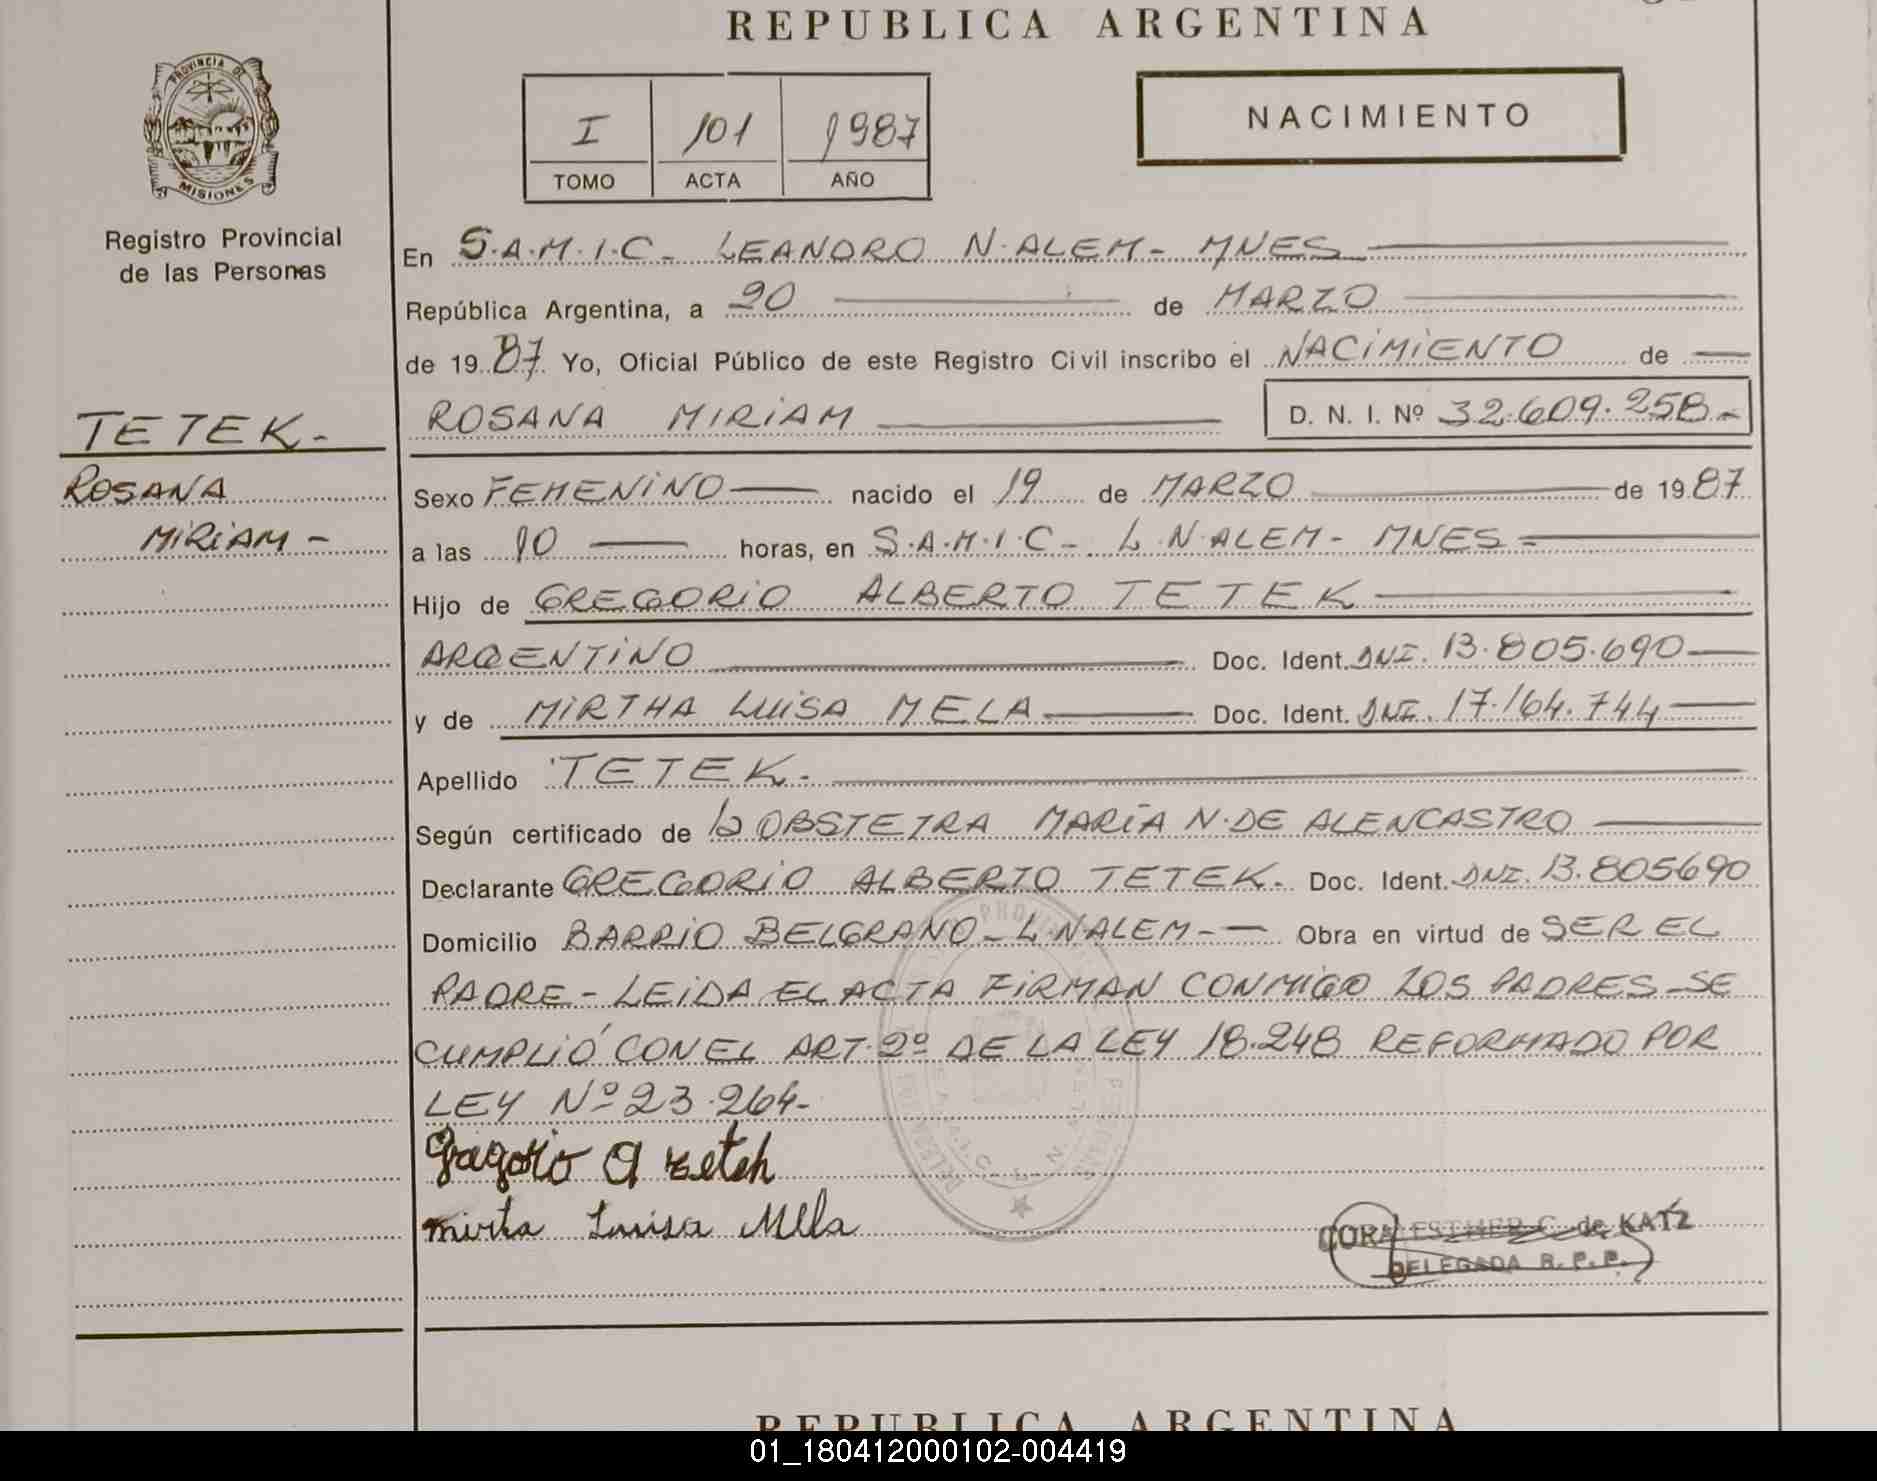 REPUBLICA ARGENTINA
PROVINCIA DE
MISIONES
Registro Provincial
de las Personas
I 101 1987
TOMO ACTA AÑO
NACIMIENTO
En S.A.M.I.C- LEANDRO N.ALEM- MNES
República Argentina, a 20 de MARZO
de 19 87 Yo, Oficial Público de este Registro Civil inscribo el NACIMIENTO de
ROSANA MIRIAM D. N. I. Nº 32.609.258-
TETEK-
ROSANA
MIRIAM-
Sexo FEMENINO nacido el 19 de MARZO de 19 87
a las 10 horas, en S.A.M.I.C- L.N.ALEM- MNES
Hijo de GREGORIO ALBERTO TETEK
ARGENTINO Doc. Ident. DNI. 13.805.690
y de MIRTHA LUISA MELA Doc. Ident. DNI. 17.164.744
Apellido TETEK.
Según certificado de la OBSTETRA MARÍA N. DE ALENCASTRO
Declarante GREGORIO ALBERTO TETEK. Doc. Ident. DNI. 13.805690
Domicilio BARRIO BELGRANO- L.N.ALEM- Obra en virtud de SER EL
PADRE- LEIDA EL ACTA FIRMAN CONMIGO LOS PADRES-SE
CUMPLIÓ CON EL ART. 2º DE LA LEY 18.248 REFORMADO POR
LEY Nº 23.264-
mirta Luisa Mela
CORA ESTHER C. de KATZ
DELEGADA R. P. P.
REPUBLICA ARGENTINA
01_180412000102-004419